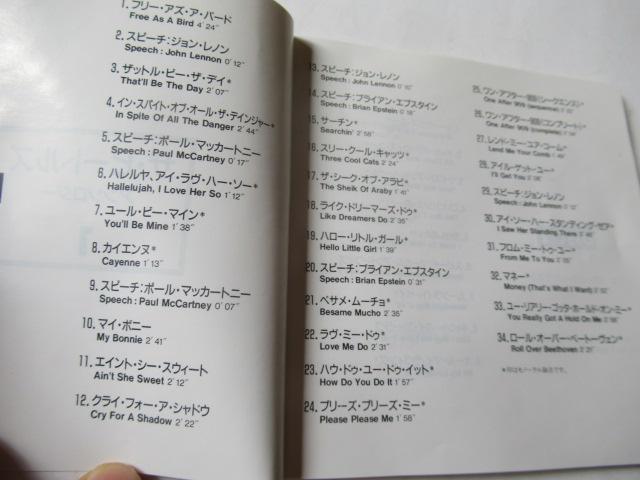 1. フリー・アズ・ア・バード
Free As A Bird 4′24″
2. スピーチ:ジョン・レノン
Speech : John Lennon 0′12″
3. ザットル・ビー・ザ・デイ*
That'll Be The Day 2′07″
4. イン・スパイト・オブ・オール・ザ・デインジャー*
In Spite Of All The Danger 2′44″
5. スピーチ:ポール・マッカートニー
Speech : Paul McCartney 0′17″
6. ハレルヤ、アイ・ラヴ・ハー・ソー*
Hallelujah, I Love Her So 1′12″
7. ユール・ビー・マイン*
You'll Be Mine 1′38″
8. カイエンヌ*
Cayenne 1′13″
9. スピーチ:ポール・マッカートニー
Speech : Paul McCartney 0′07″
10. マイ・ボニー
My Bonnie 2′41″
11. エイント・シー・スウィート
Ain't She Sweet 2′12″
12. クライ・フォー・ア・シャドウ
Cry For A Shadow 2′22″
13. スピーチ:ジョン・レノン
Speech : John Lennon 0′10″
14. スピーチ:ブライアン・エプスタイン
Speech : Brian Epstein 0′18″
15. サーチン*
Searchin' 2′58″
16. スリー・クール・キャッツ*
Three Cool Cats 2′24″
17. ザ・シーク・オブ・アラビ*
The Sheik Of Araby 1′41″
18. ライク・ドリーマーズ・ドゥ*
Like Dreamers Do 2′35″
19. ハロー・リトル・ガール*
Hello Little Girl 1′39″
20. スピーチ:ブライアン・エプスタイン
Speech : Brian Epstein 0′31″
21. ベサメ・ムーチョ*
Besame Mucho 2′36″
22. ラヴ・ミー・ドゥ*
Love Me Do 2′31″
23. ハウ・ドゥ・ユー・ドゥ・イット*
How Do You Do It 1′57″
24. プリーズ・プリーズ・ミー*
Please Please Me 1′58″
25. ワン・アフター・909(シークエンス)*
One After 909 (sequence)
26. ワン・アフター・909(コンプリート)*
One After 909 (complete)
27. レンド・ミー・ユア・コーム*
Lend Me Your Comb
28. アイル・ゲット・ユー*
I'll Get You
29. スピーチ:ジョン・レノン
Speech : John Lennon 0′12″
30. アイ・ソー・ハー・スタンディング・ゼア*
I Saw Her Standing There
31. フロム・ミー・トゥ・ユー*
From Me To You
32. マネー*
Money (That's What I Want)
33. ユー・リアリー・ゴッタ・ホールド・オン・ミー*
You Really Got A Hold On Me
34. ロール・オーバー・ベートーヴェン*
Roll Over Beethoven
*印はモノーラル録音です。